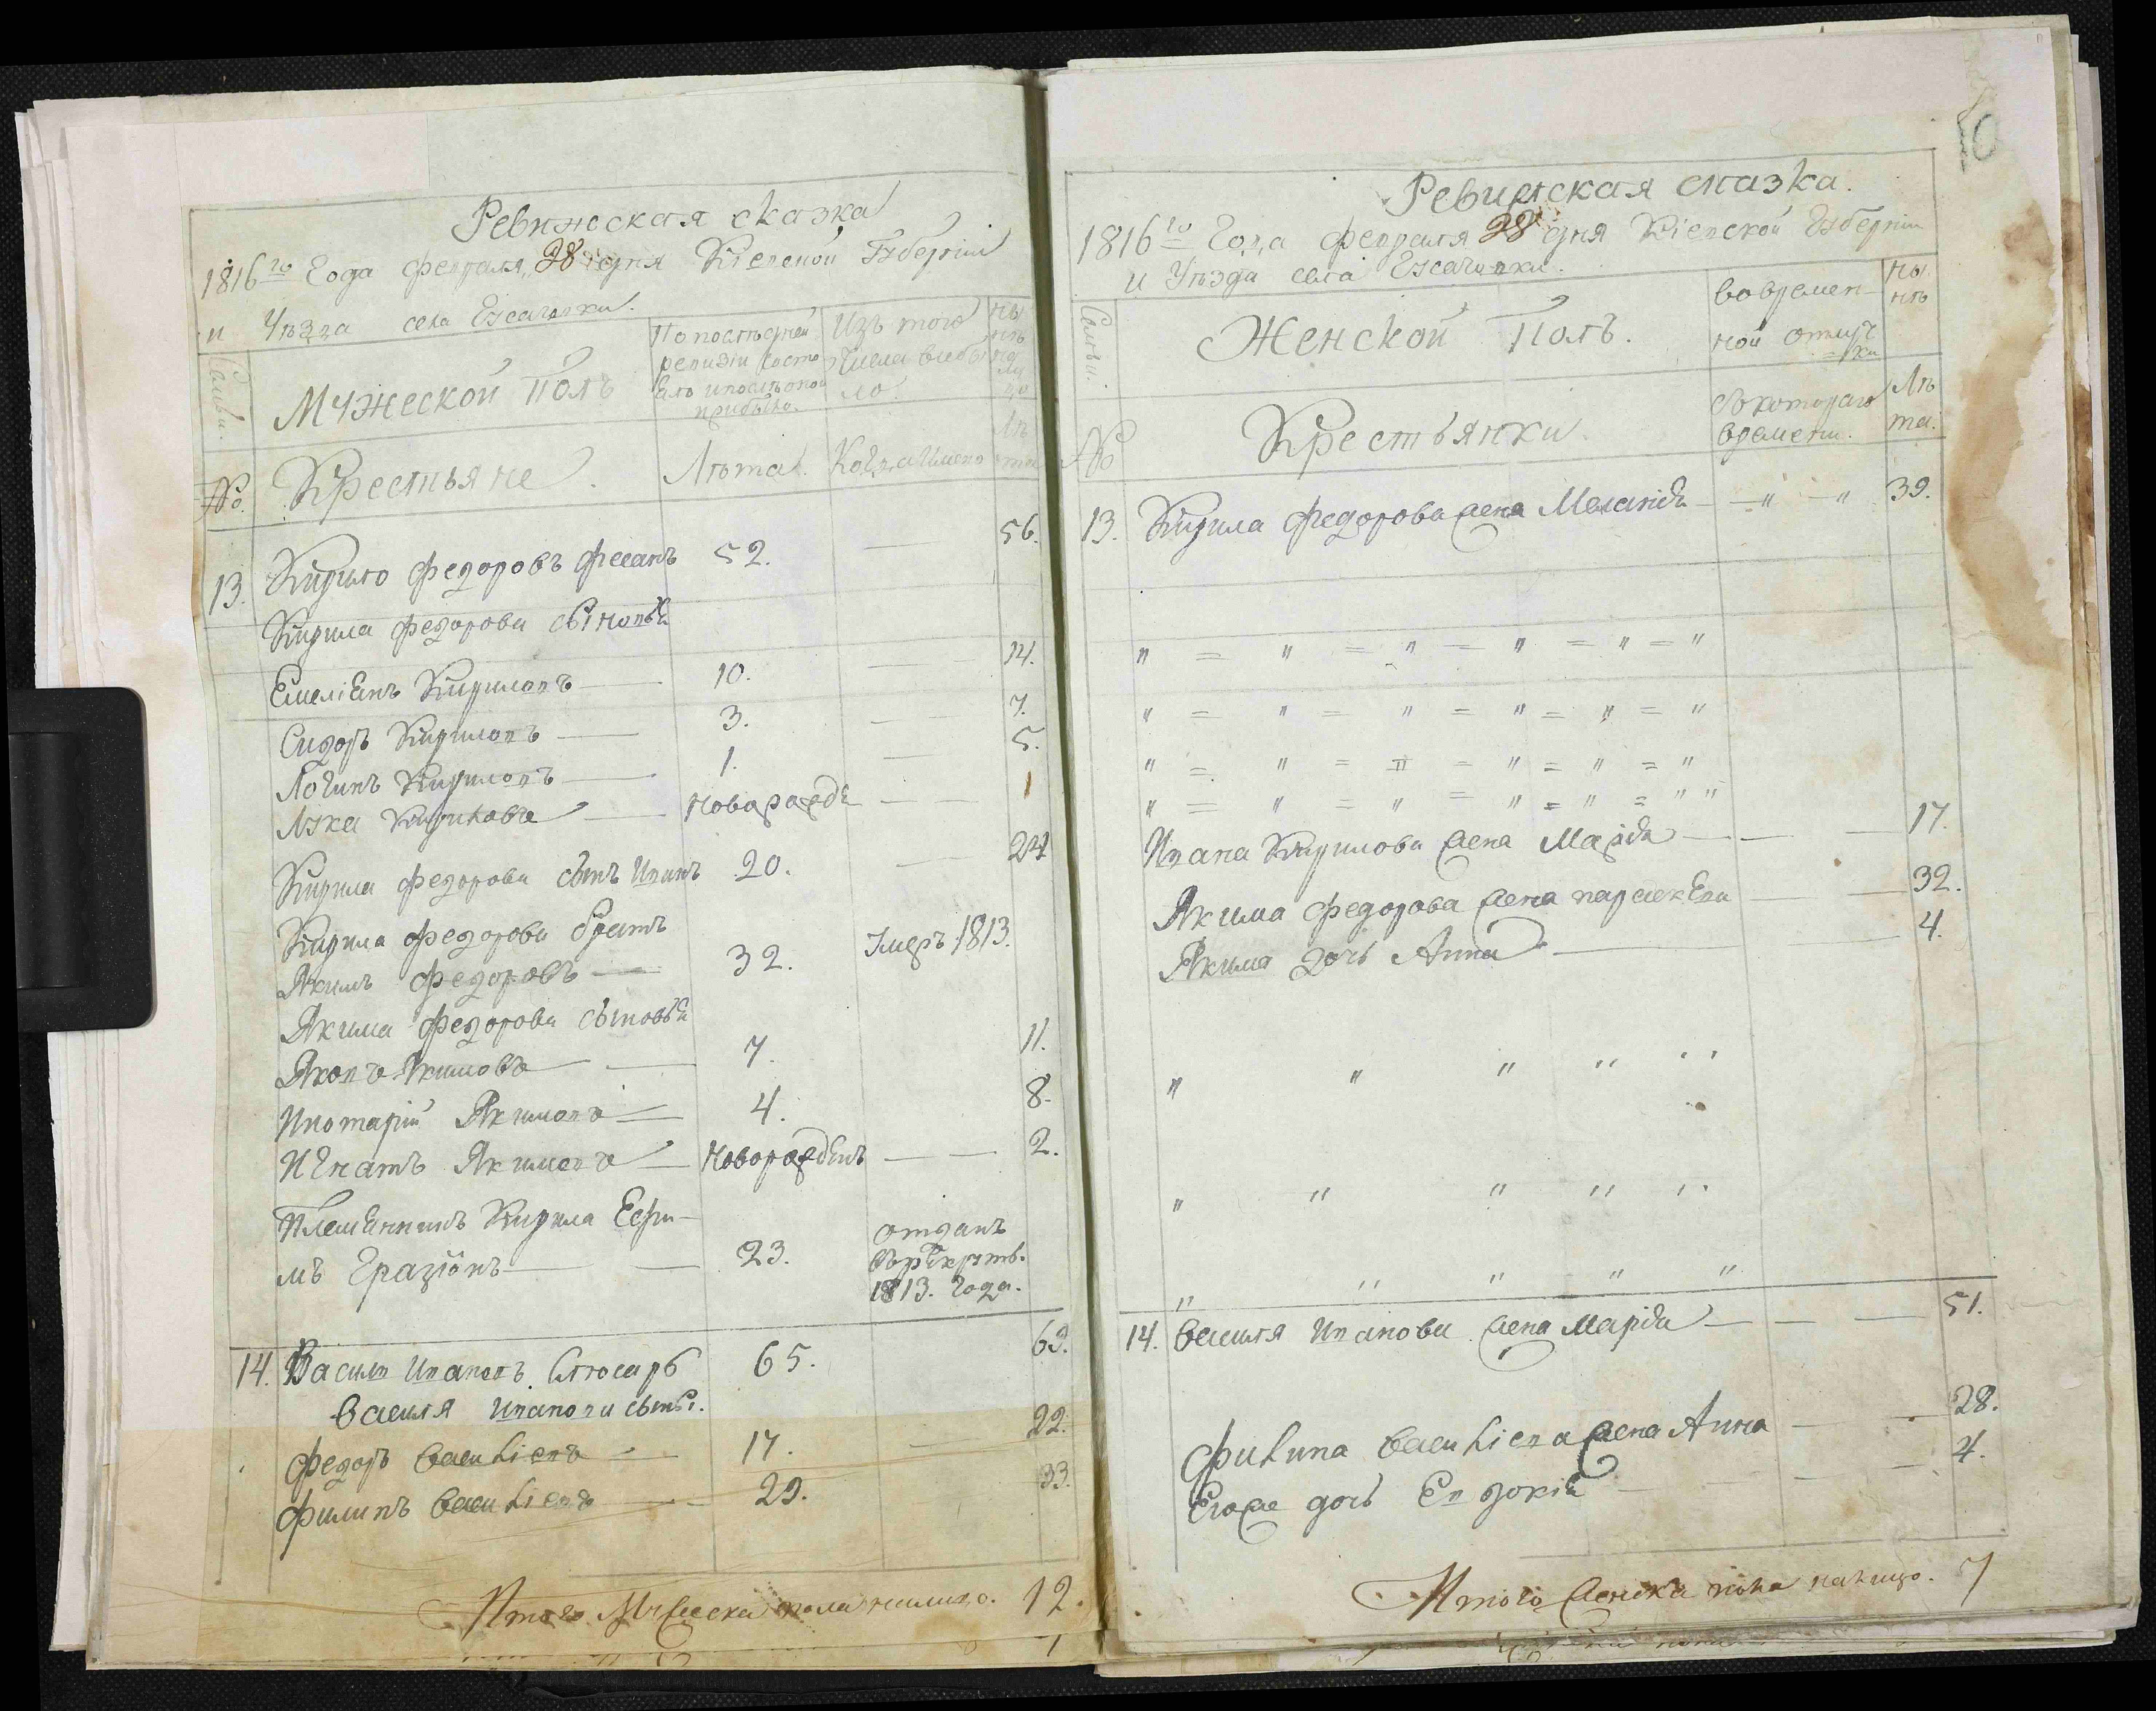 Ревижеская сказка
1816го Года февраля 28 дня Кіевской Губерніи
и Уѣзда села
Семьи.
Мужеской Полъ
По послѣдней
ревизіи состо
яло и послѣ оной
прибыло.
Изъ того
Числа выбы
ло.
Ны
нѣ
на
ли
цо
№. Крестьяне. Лѣта. Когда именно
Лѣ
та
13. Кирило Федоровъ 52. 56.
Кирила Федорова сыновья
Емеліянъ Кириловъ 10. 14.
Сидоръ Кириловъ 3. 7.
Логинъ Кириловъ 1. 5.
Лука Кириловъ новорожде 1
Кирила Федорова сынъ Иванъ 20. 24
Кирила Федорова братъ
Якимъ Федоровъ 32. Умеръ 1813.
Якима Федорова сыновья
Яковъ Якимовъ 7. 11.
Якимовъ 4. 8.
Игнатъ Якимовъ новорожденъ 2.
Племенникъ Кирила Ефи-
мъ 23.
отданъ
въ рекруты.
1813. Года.
14. Васили Ивановъ Слюсарь 65. 69.
Василя Иванова сыны.
Федоръ Василіевъ 17. 22.
Филипъ Василіевъ 29. 33.
Итого Мужеска пола налицо. 12.
10
Ревижская сказка.
1816го Года февраля 28 дня Кіевской Губерніи
и Уѣзда села
Семьи.
Женской Полъ.
во времен-
ной отлуч
ки
Ны
нѣ
№ Крестьянки.
съ котораго
времени.
Лѣ
та.
13. Кирила Федорова жена Меланія — " — " 39.
" = " = " = " = " = "
" = " = " = " = " = "
" = " = " = " = " = "
" = " = " = " = " = " "
Ивана Кирилова жена Марія 17.
Якима Федорова жена 32.
Якима дочь Анна 4.
" " " " "
" " " " "
" " " " "
14. Василя Иванова жена Марія 51.
Филипа Василіева жена Анна 28.
Егоже дочь Евдокія 4.
Итого Женска пола налицо. 7